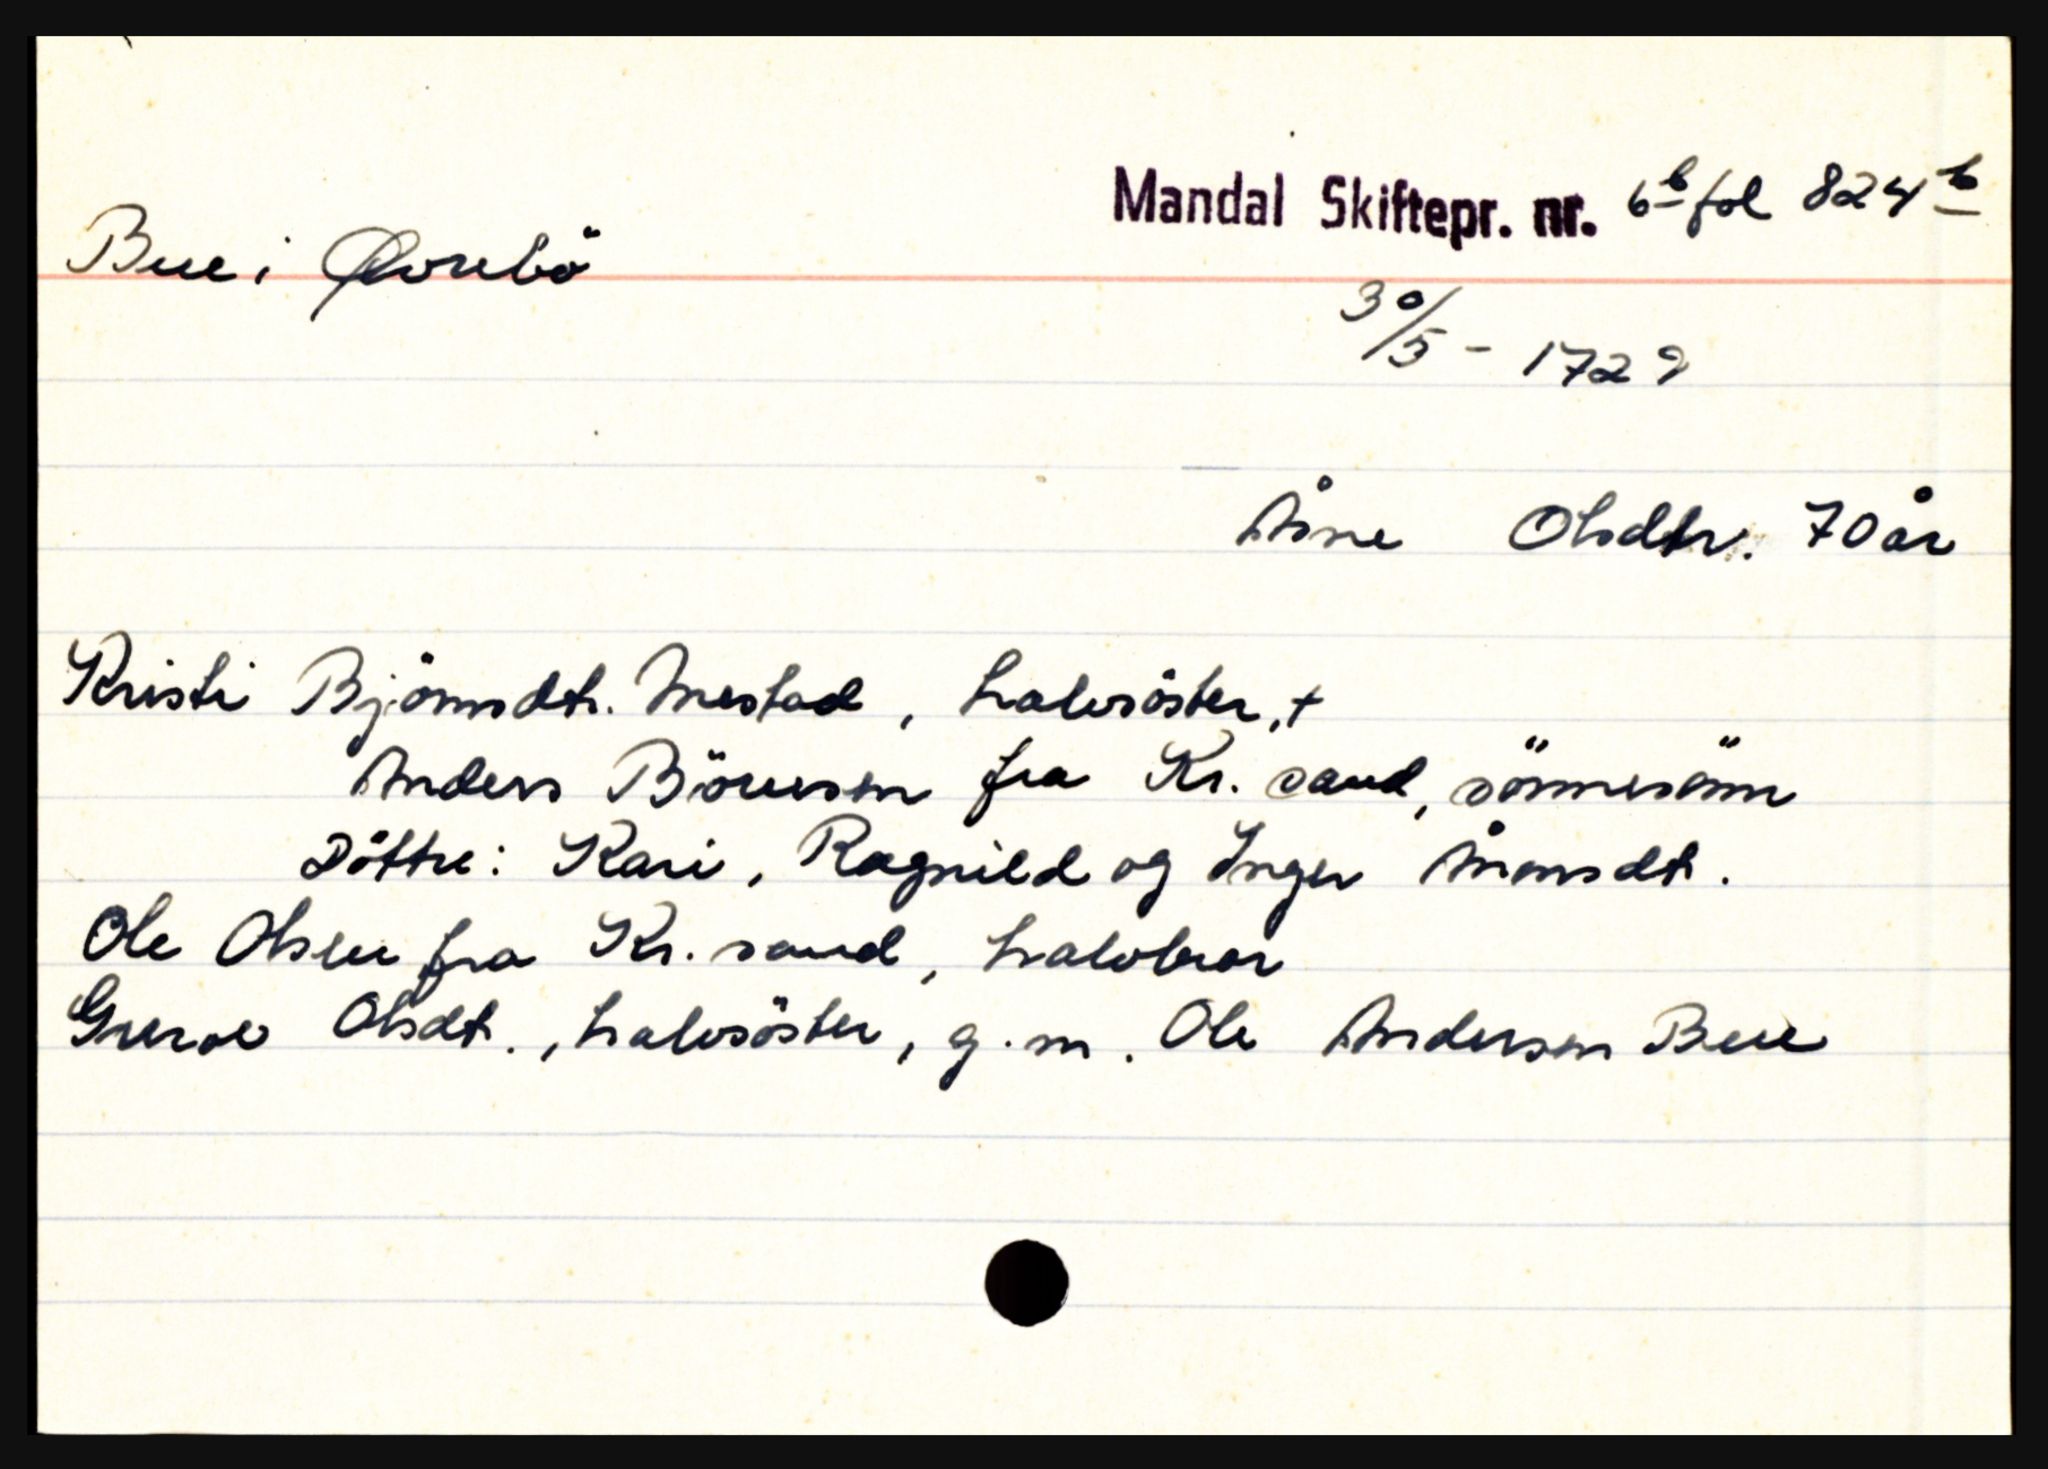 Mandal Skiftepr. nr. 6b fol 824b
Bue i Øvrebö
30/5 - 1729
Åsne Olsdtr. 70 år
Kristi Björnsdtr. Mestad, halvsöster, +
Anders Börresen fra Kr. sand, sönnesönn
Döttre: Kari, Ragnild og Inger Åmunsdt.
Ole Olsen fra Kr. sand, halvbror
Guroe Olsdt., halvsöster, g. m. Ole Andersen Bue